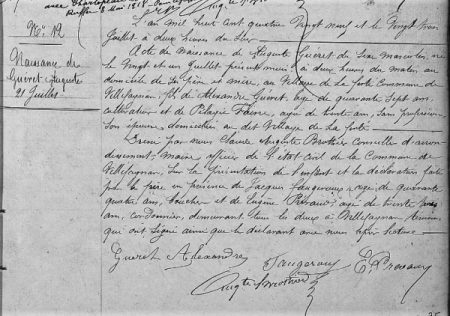 avec
Ruffec 8 mai 1918
N° 12
Naissance de
Guéret Auguste
21 Juillet
L'an mil huit cent quatre vingt neuf et le Vingt trois
Juillet à deux heures du soir
Acte de Naissance de Auguste Guéret du sexe masculin, né
le Vingt et un Juillet présent mois à deux heures du matin, au
domicile de ses père et mère, au Village de la forte Commune de
Villefagnan, fils de Alexandre Guéret, âgé de quarante sept ans
cultivateur et de Pélagie Favre, âgée de trente ans, sans profession
son épouse, domiciliés au dit Village de la forte
Dressé par nous Claude Auguste Brothier Conseiller d'arron
dissement, Maire officier de l'état civil de la Commune de
Villefagnan, sur la présentation de l'enfant et la déclaration faite
par le père en présence de Jacques Faugeroux, âgé de quarante
quatre ans, boucher et de Eugène Prevaud, âgé de trente
ans, cordonnier, demeurant tous les deux à Villefagnan, témoins
qui ont signé ainsi que le déclarant avec nous après lecture
Gueret Alexandre
Faugeroux
E. Prevaud
Augte Brothier